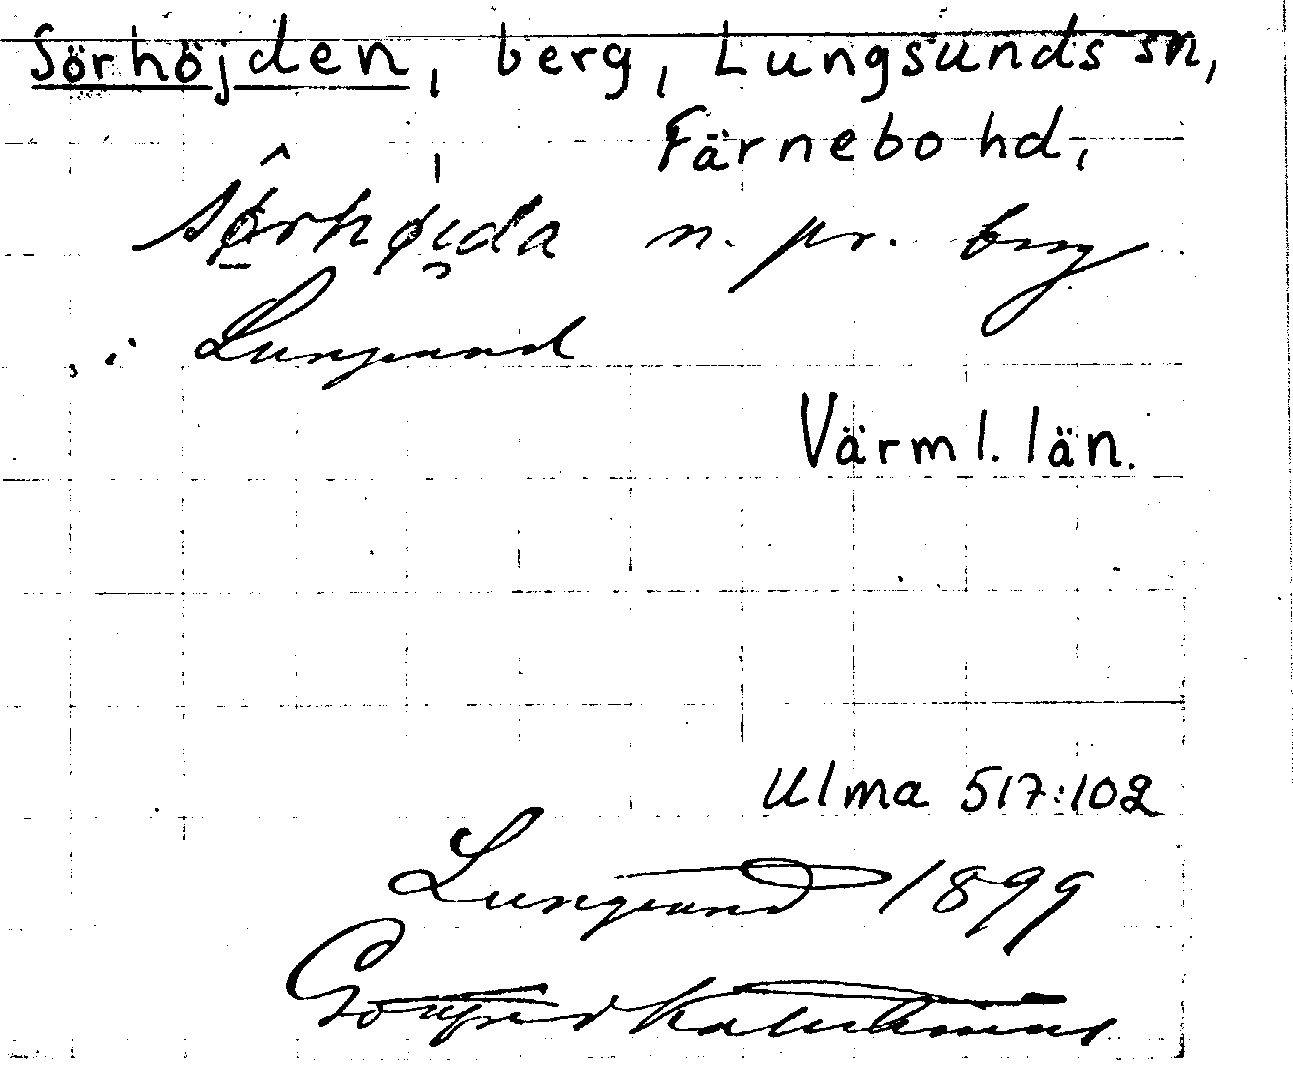 Sörhöjden, berg, Lungsunds sn,
Färnebo hd,
sørhøi̯da n. pr. berg
i Lungsund
Värml. län.
Ulma 517:102
Lungsund 1899
Gottfrid Kallstenius